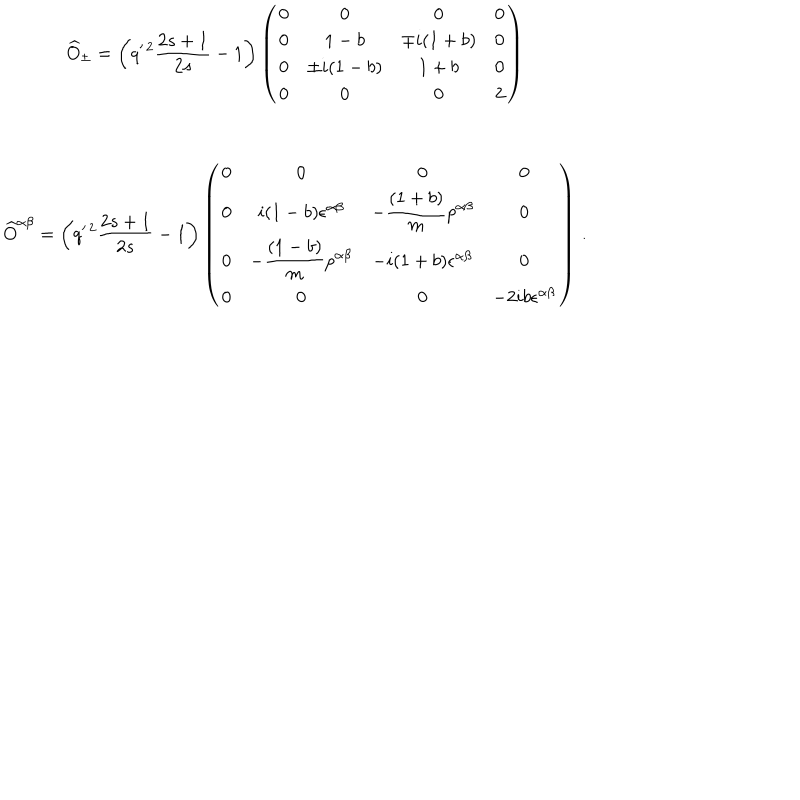 \widehat{O}_{\pm} = \left( q'^{\,2} \dfrac{2s+1}{2s} - 1 \right) \begin{pmatrix} 0 & 0 & 0 & 0 \\ 0 & 1-b & \mp i(1+b) & 0 \\ 0 & \pm i(1-b) & 1+b & 0 \\ 0 & 0 & 0 & 2 \end{pmatrix}
\widehat{O}^{\alpha\beta} = \left( q'^{\,2} \dfrac{2s+1}{2s} - 1 \right) \begin{pmatrix} 0 & 0 & 0 & 0 \\ 0 & i(1-b)\epsilon^{\alpha\beta} & -\dfrac{(1+b)}{m} p^{\alpha\beta} & 0 \\ 0 & -\dfrac{(1-b)}{m} p^{\alpha\beta} & -i(1+b)\epsilon^{\alpha\beta} & 0 \\ 0 & 0 & 0 & -2ib\epsilon^{\alpha\beta} \end{pmatrix} .